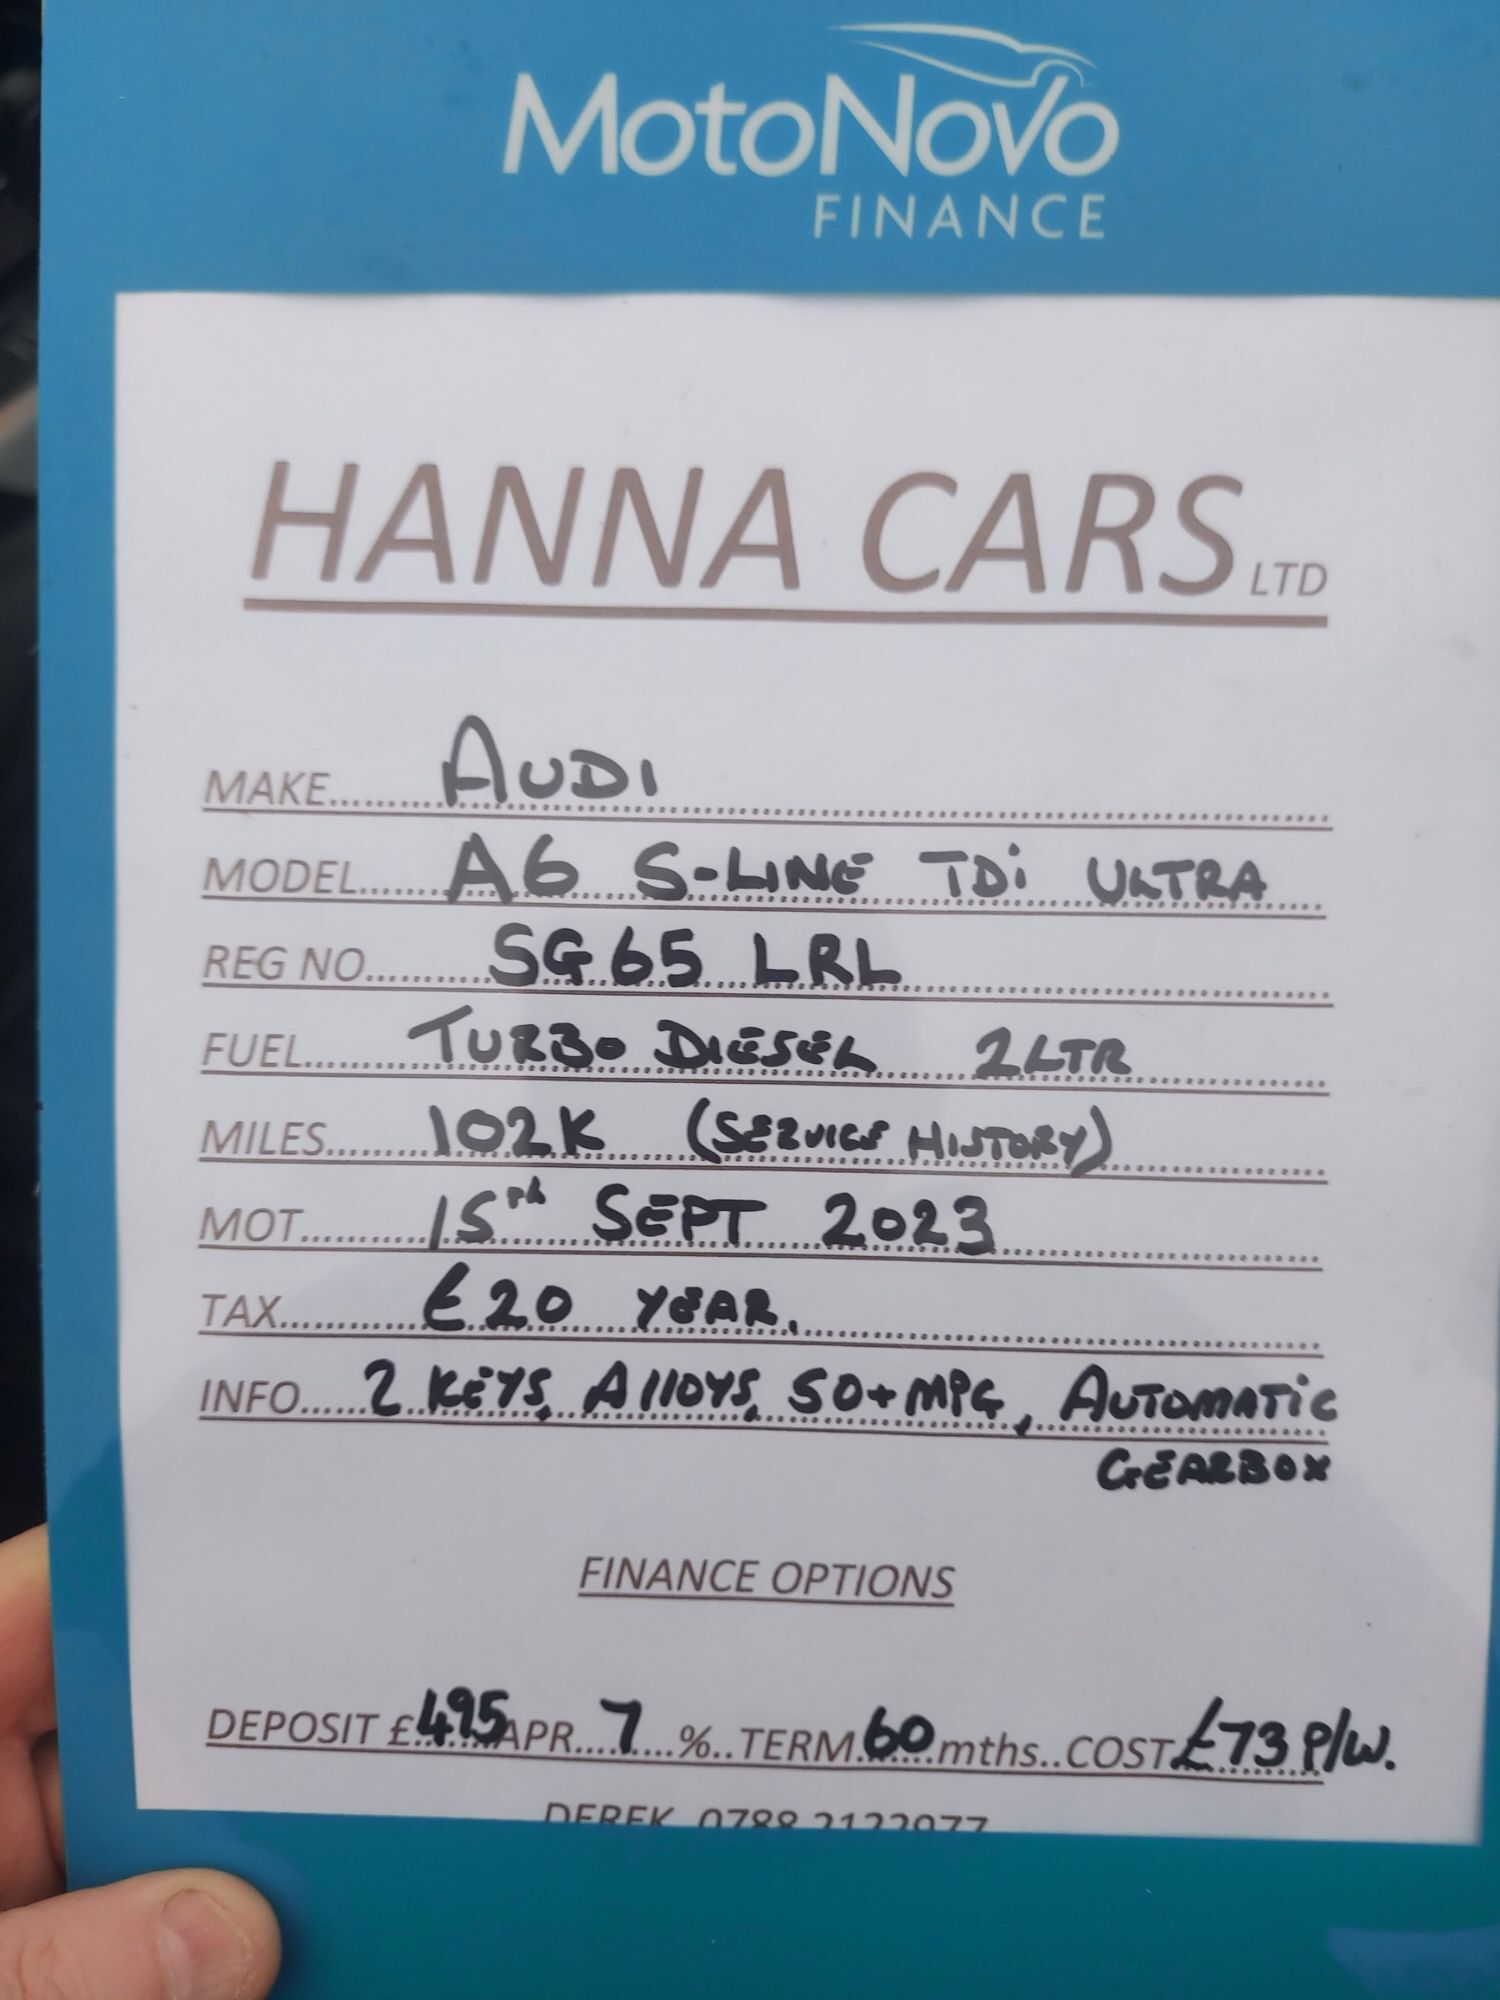 MOTONOVO
FINANCE
HANNA CARS LTD
MAKE...... AUDI
MODEL...... A6 S-LINE TDi ULTRA
REG NO...... SG65 LRL
FUEL...... TURBO DIESEL 2LTR
MILES...... 102K (SERVICE HISTORY)
MOT...... 15th SEPT 2023
TAX...... £20 YEAR.
INFO...... 2 KEYS, AllOYS, 50+MPG, AUTOMATiC
GEARBOX
FINANCE OPTIONS
DEPOSIT £495 APR....7....%..TERM.60 mths..COST £73 P/W.
DEREK 0788 2122977